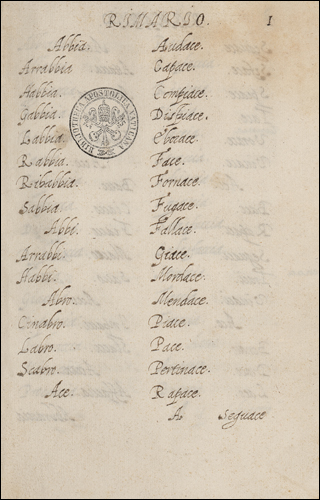 RIMARIO. 1
Abbia.
Arrabbia
Habbia.
Gabbia.
Labbia.
Rabbia.
Sabbia.
Abbi.
Arrabbi.
Habbi.
Abro.
Cinabro.
Labro.
Scabro.
Ace.
Audace.
Capace.
Compiace.
Dispiace.
Face.
Fornace.
Fugace.
Fallace.
Giace.
Mordace.
Mendace.
Piace.
Pace.
Pertinace.
Rapace.
A Seguace
BIBLIOTHECA APOSTOLICA VATICANA